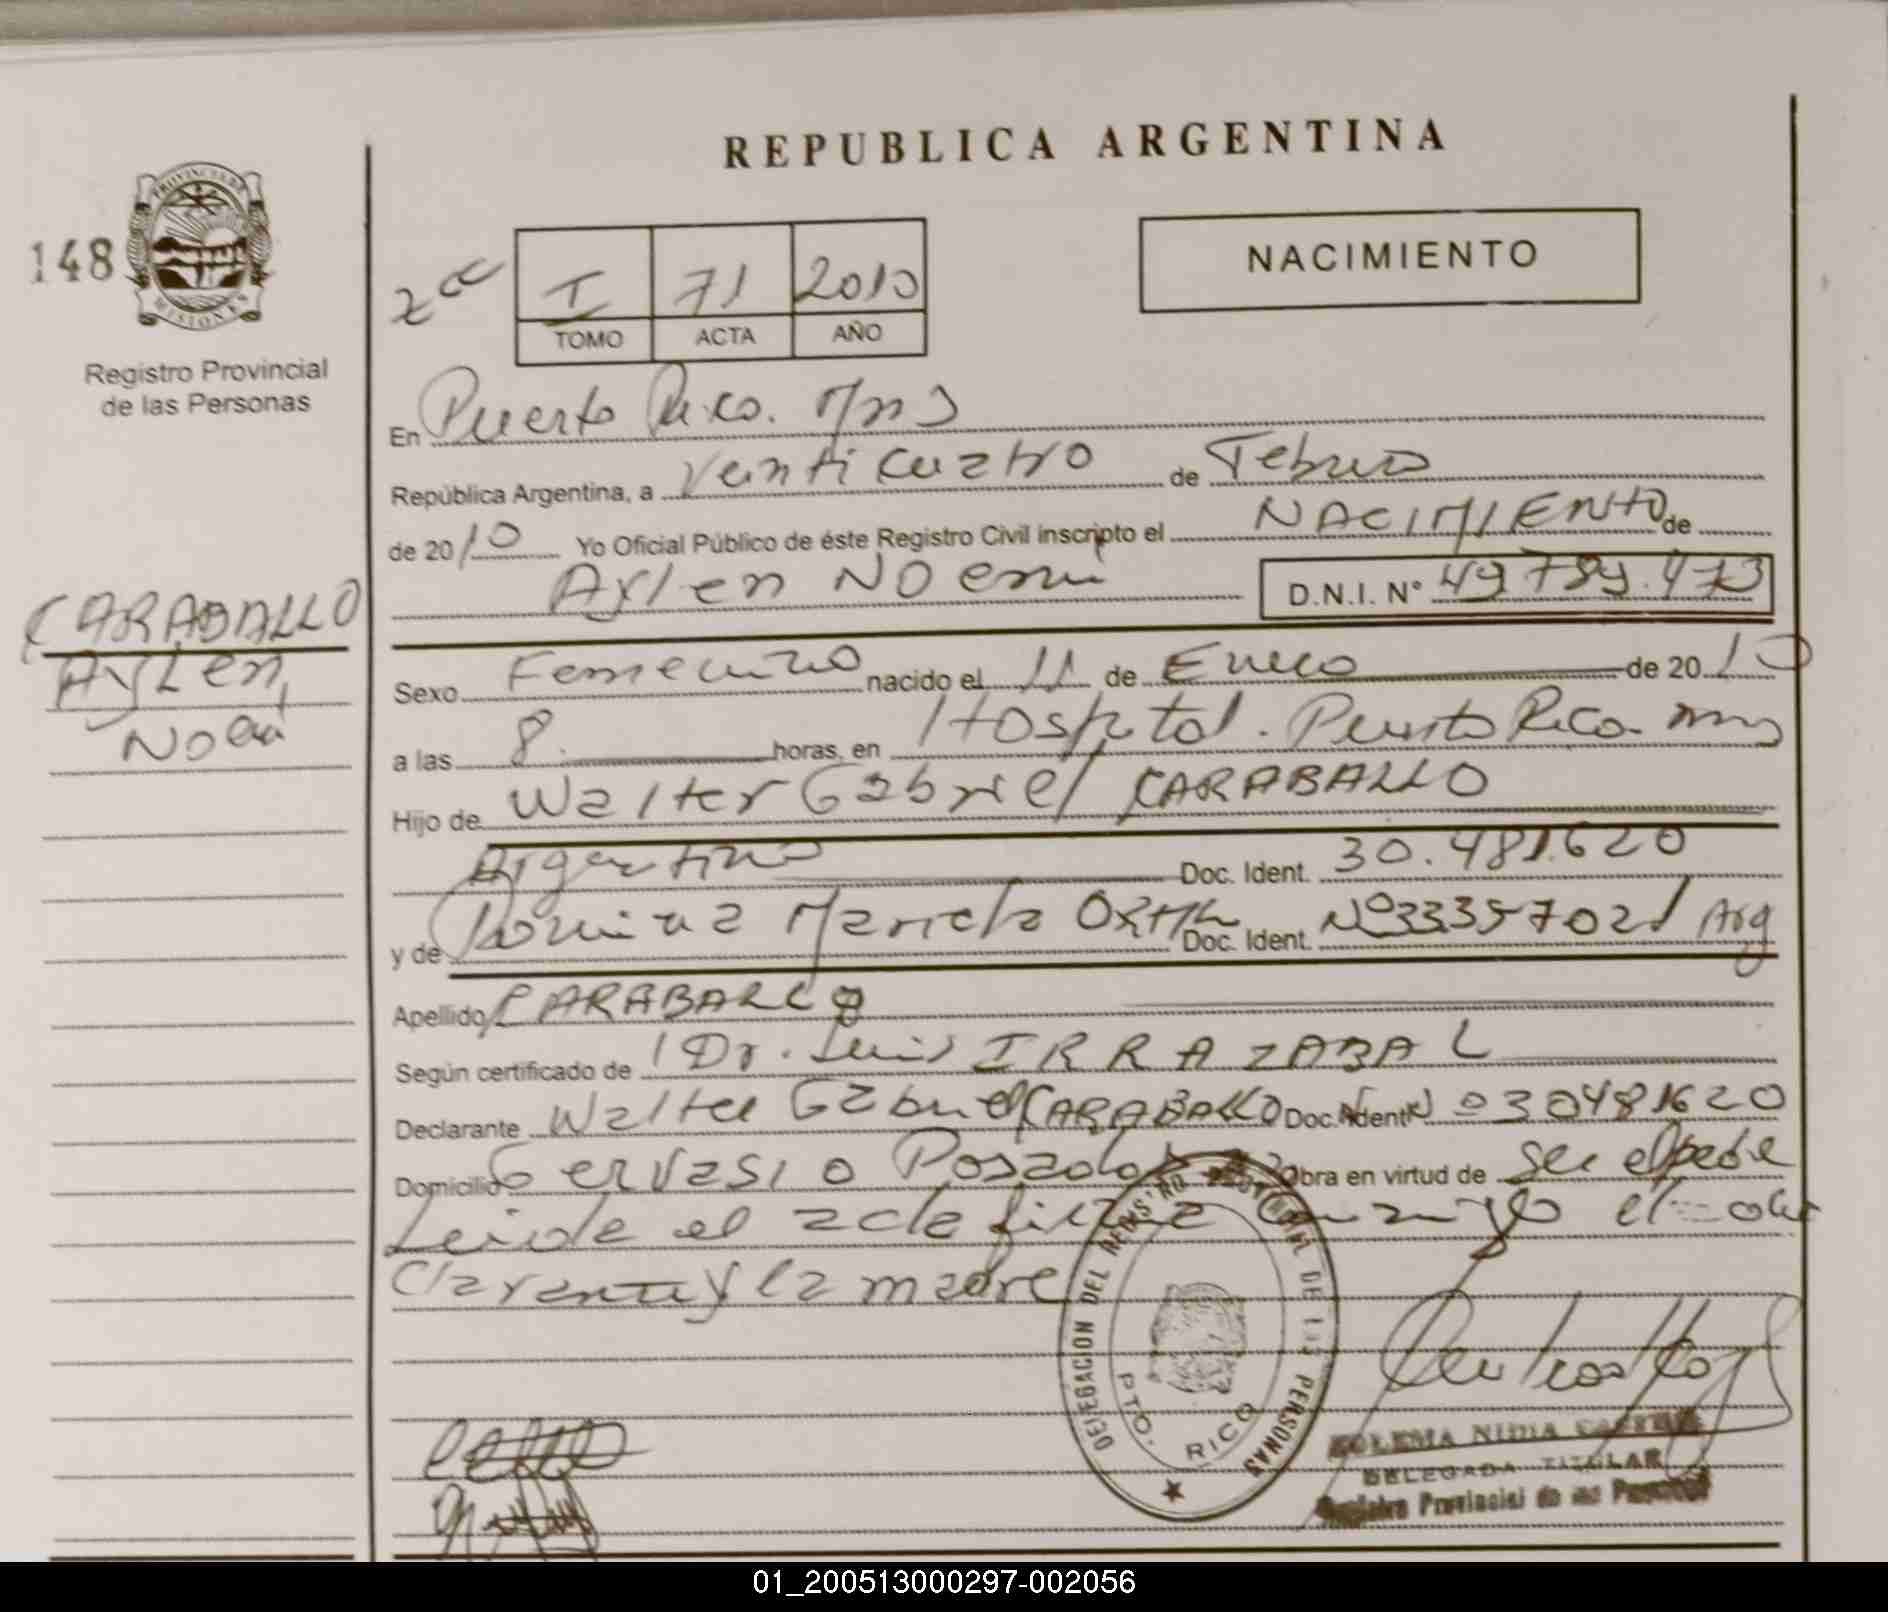 REPUBLICA ARGENTINA
148
PROVINCIA DE
MISIONES
Registro Provincial
de las Personas
I 71 2010
TOMO ACTA AÑO
NACIMIENTO
En Puerto Rico. Mns
República Argentina, a Venticuatro de Febrero
de 2010 Yo Oficial Público de éste Registro Civil inscripto el NACIMIENTO de
Aylen Noemi D.N.I. Nº 49.789.473
CARABALLO
Aylen
Noemi
Sexo Femenino nacido el 11 de Enero de 2010
a las 8. horas, en Hospital. Puerto Rico. Mns
Hijo de Walter Gabriel CARABALLO
Argentino Doc. Ident. 30.481.620
y de Romina Mariela Doc. Ident. Nº 33357021 Arg
Apellido CARABALLO
Según certificado de Dr. Luis IRRAZABAL
Declarante Walter Gabriel CARABALLO Doc. Ident. Nº 30481620
Domicilio Gervasio Posadas Obra en virtud de ser el padre
Leida el acta firma conmigo el de
clarante y la madre
DELEGACION DEL REGISTRO PROVINCIAL DE LAS PERSONAS
PTO. RICO
ZULEMA NIDIA
DELEGADA TITULAR
Registro Provincial de las Personas
01_200513000297-002056